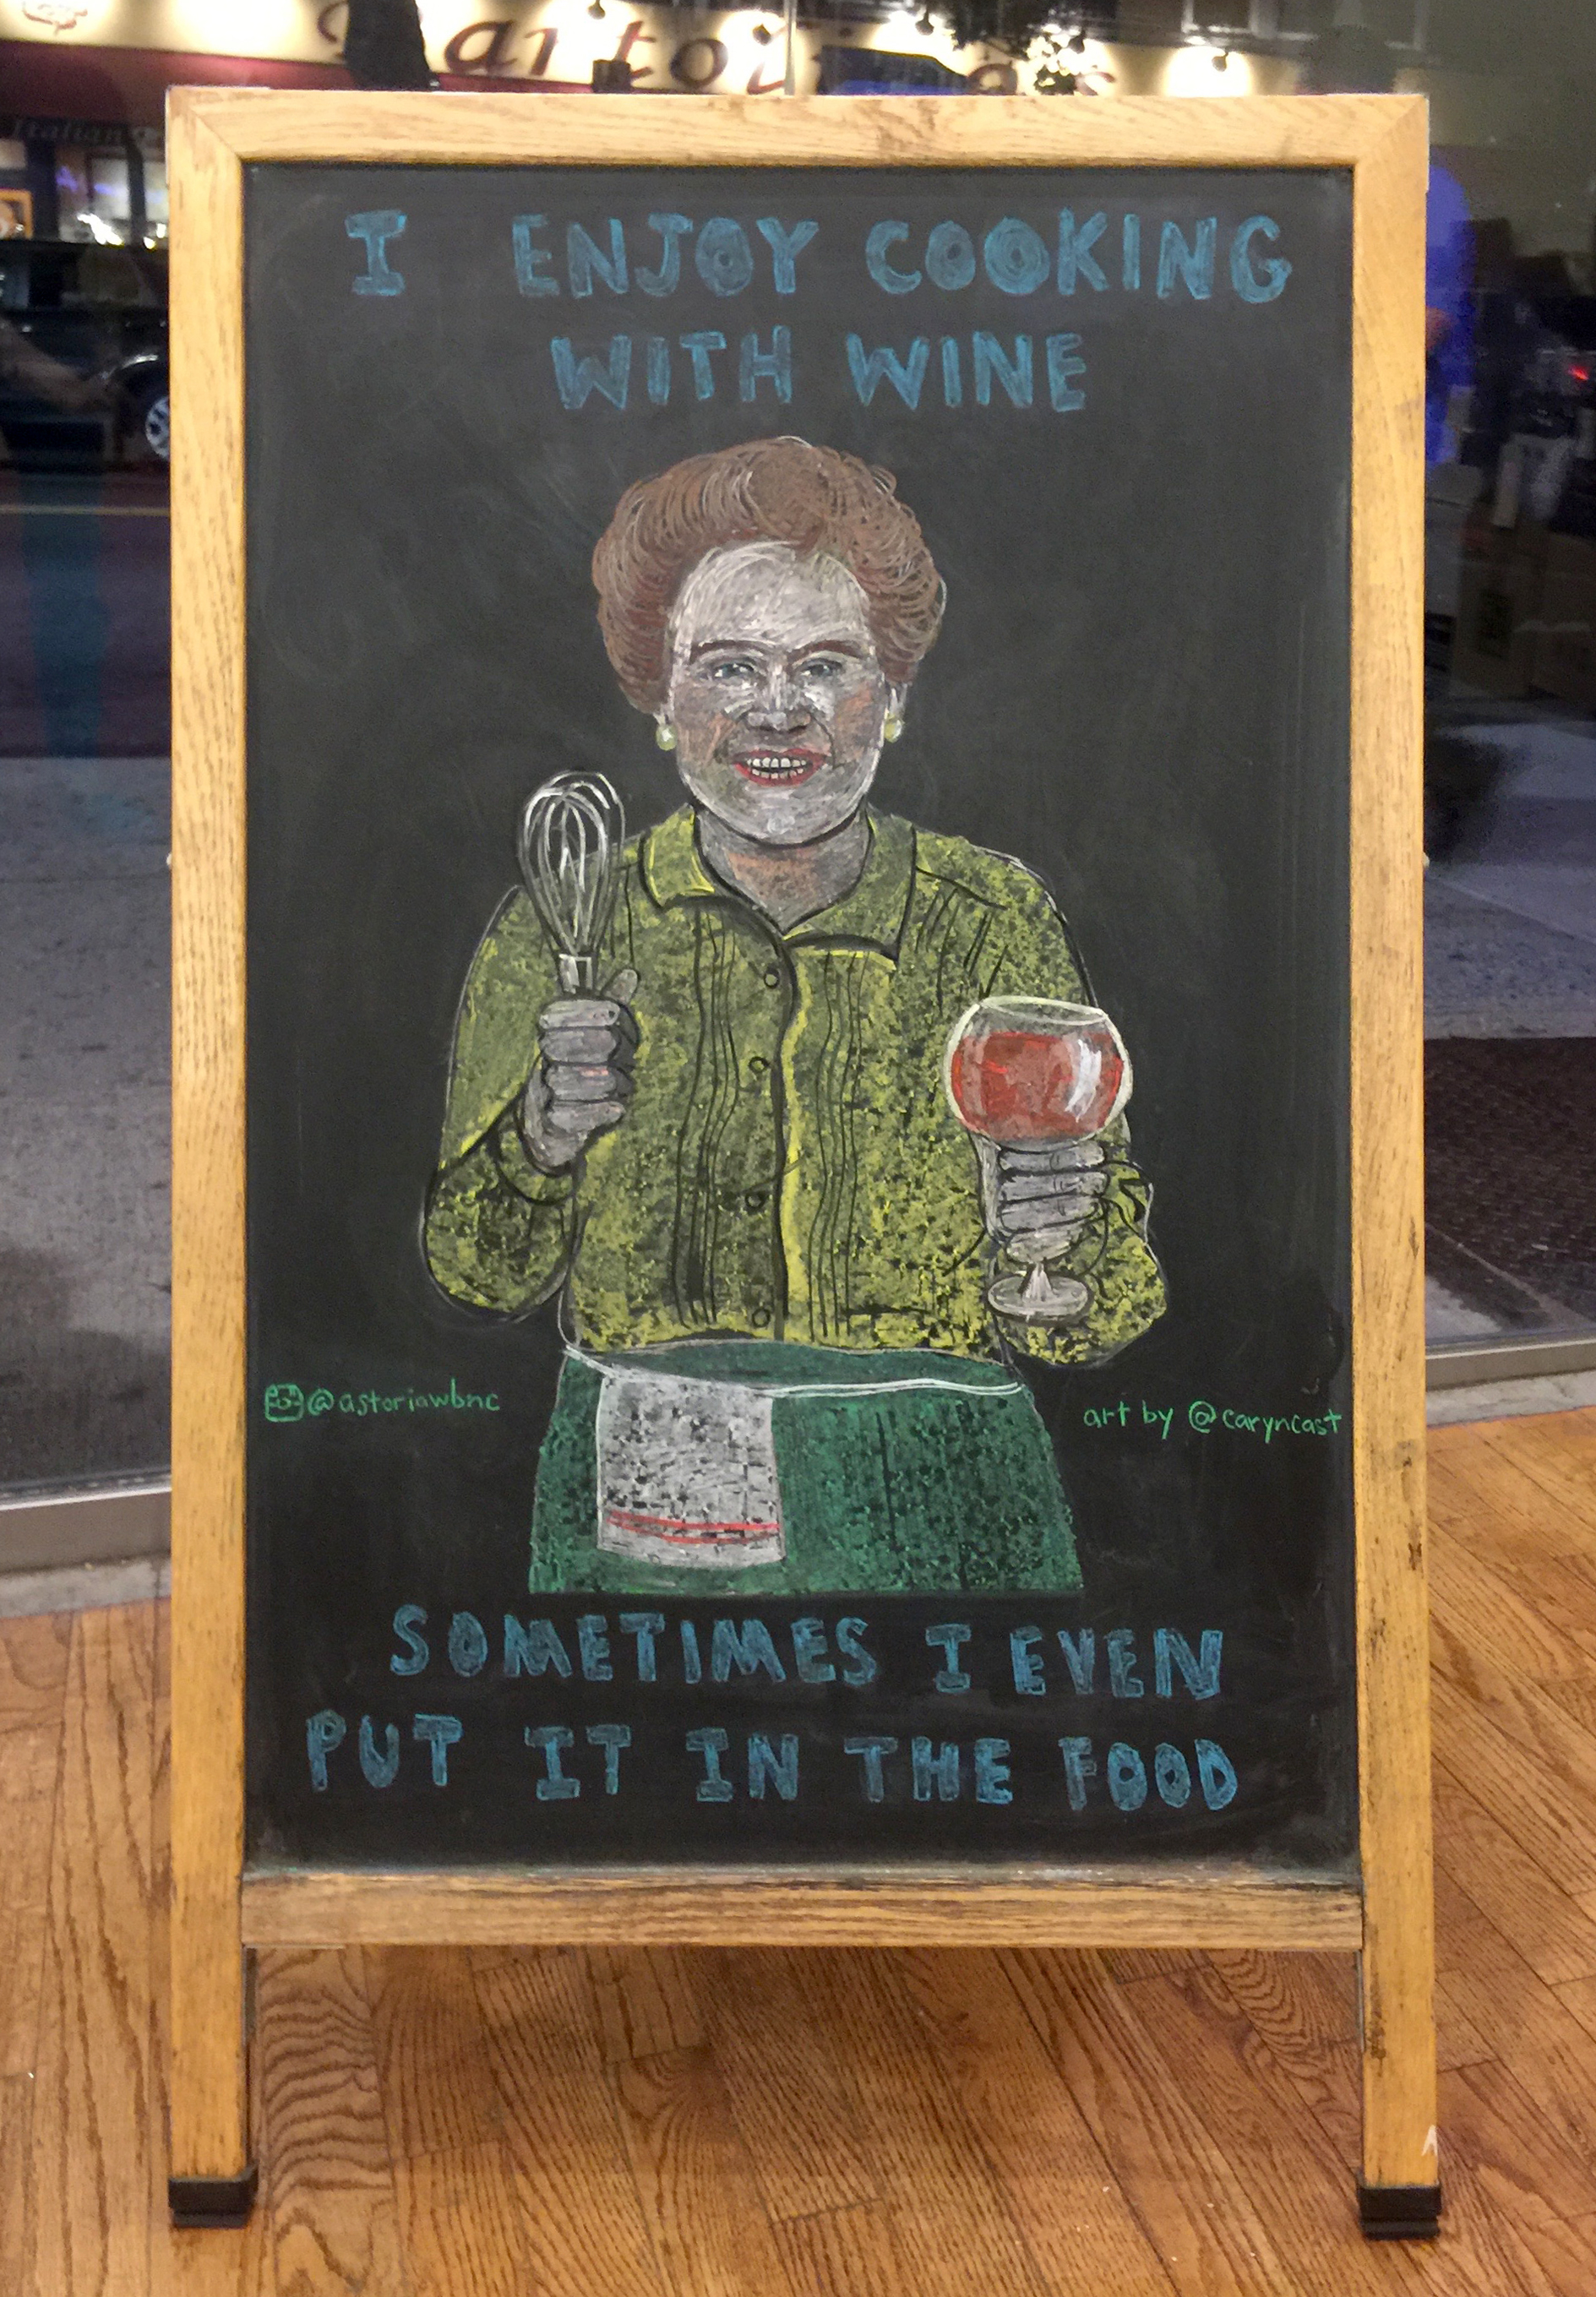 Italian
I ENJOY COOKING
WITH WINE
@astoriawbnc
art by @caryncast
SOMETIMES I EVEN
PUT IT IN THE FOOD